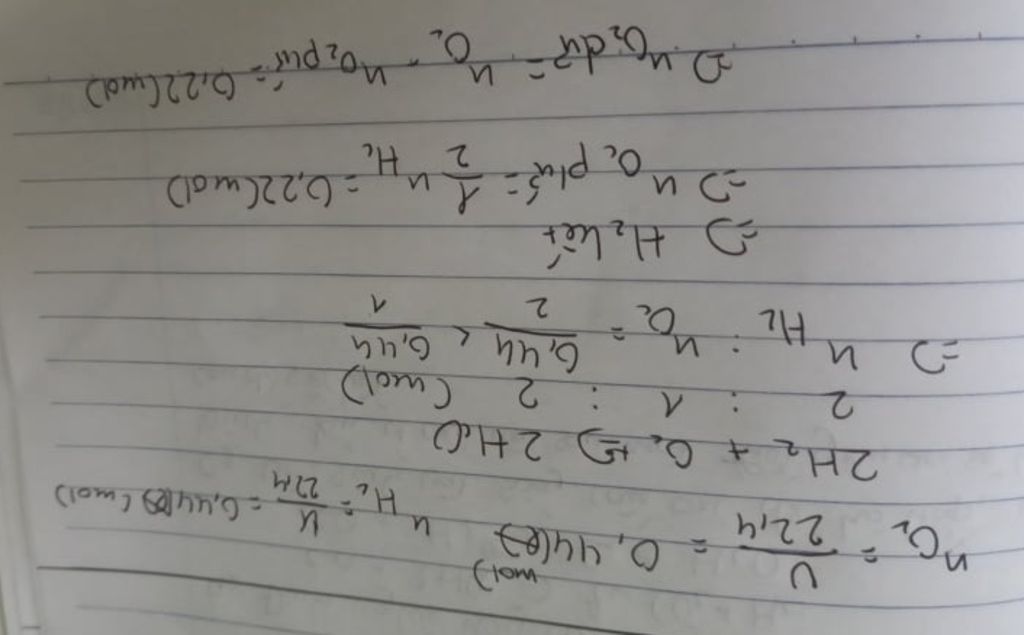 nO₂ = V/22,4 = 0,44 (mol) nH₂ = V/22,4 = 0,44 (mol)
2H₂ + O₂ => 2H₂O
2 : 1 : 2 (mol)
=> nH₂ : nO₂ = 0,44/2 < 0,44/1
=> H₂ hết
=> nO₂ phứ = 1/2 nH₂ = 0,22 (mol)
=> nO₂ dư = nO₂ - nO₂ pứ = 0,22 (mol)